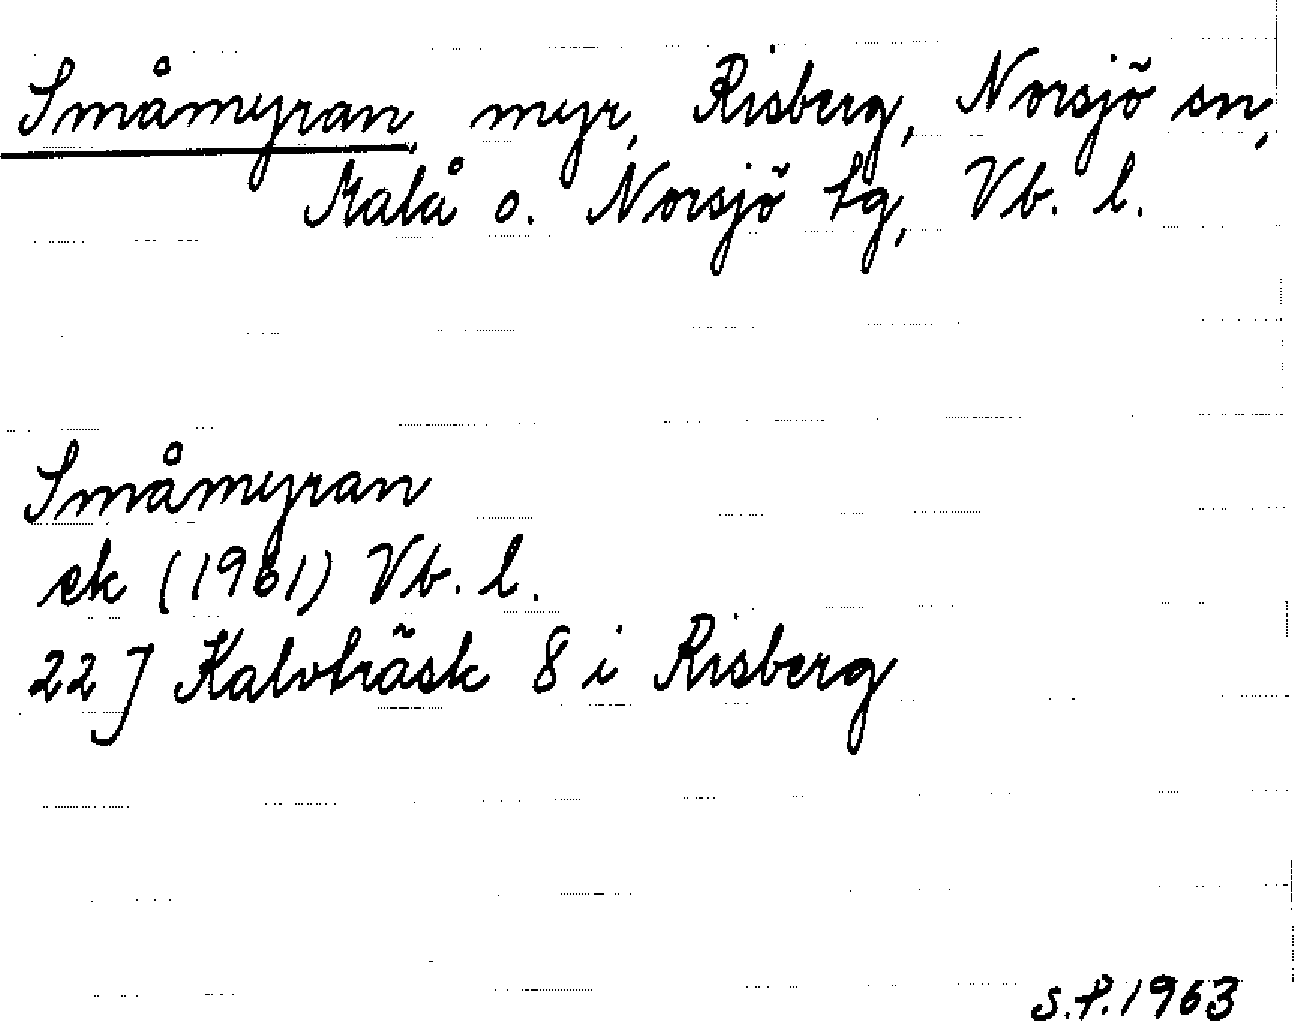 Småmyran, myr, Risberg, Norsjö sn,
Malå o. Norsjö tg, Vb. l.
Småmyran
ek (1961) Vb. l.
22 J Kalvträsk 8 i Risberg
S.P. 1963